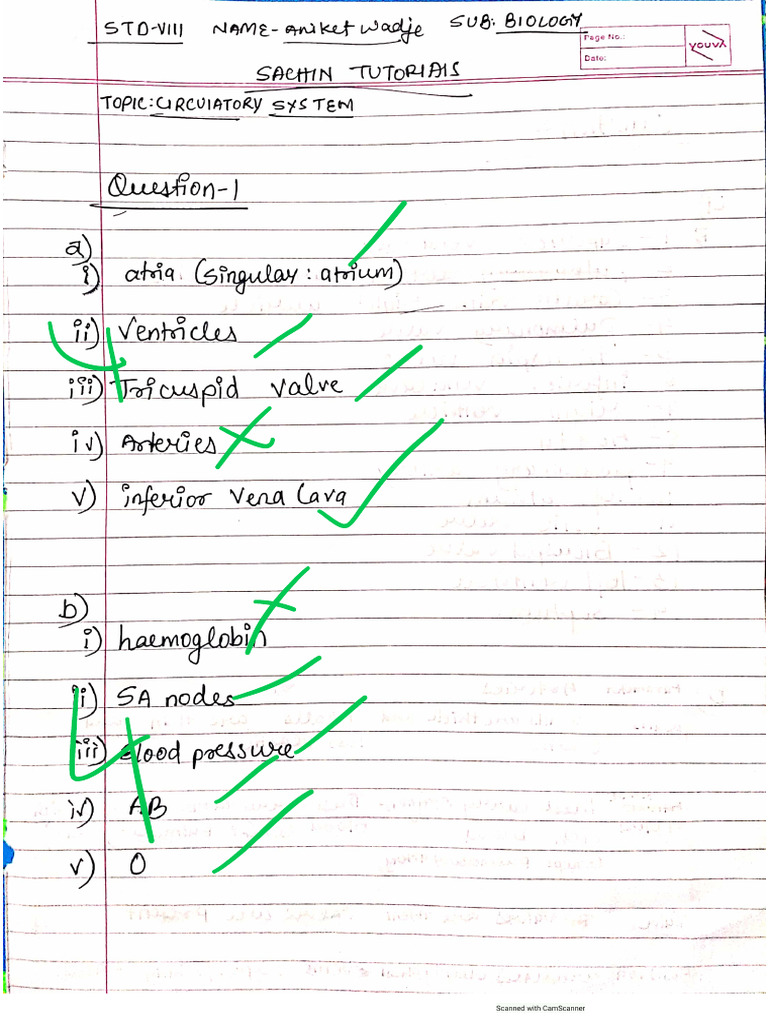 STD-VIII NAME- Aniket Wadje SUB: BIOLOGY
Page No.:
Date:
youva
SACHIN TUTORIALS
TOPIC: CIRCULATORY SYSTEM
Question-1
a)
i) atria (singular: atrium)
ii) Ventricles
iii) Tricuspid valve
iv) Arteries
v) inferior vena cava
b)
i) haemoglobin
ii) SA nodes
iii) Blood pressure
iv) AB
v) O
Scanned with CamScanner